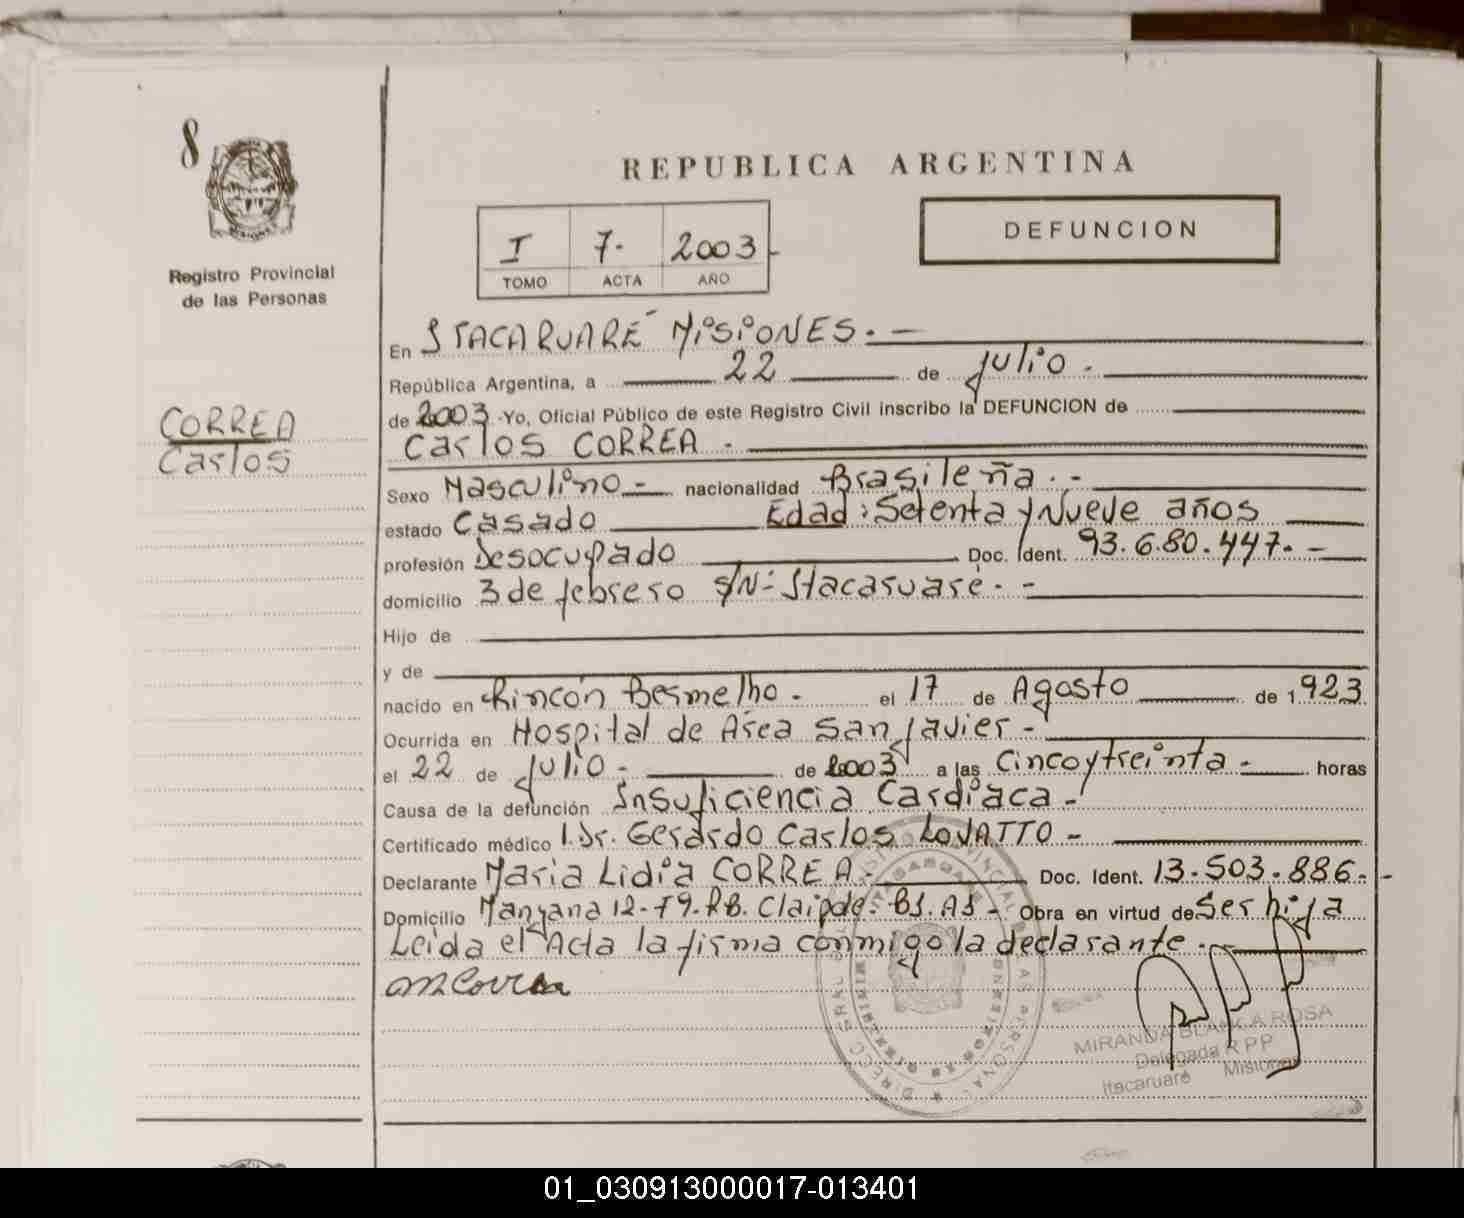 8
REPUBLICA ARGENTINA
DEFUNCION
I 7. 2003
TOMO ACTA AÑO
Registro Provincial
de las Personas
CORREA
Carlos
En ITACARUARÉ MISIONES. -
República Argentina, a 22 de julio.
de 2003 Yo, Oficial Público de este Registro Civil inscribo la DEFUNCION de
Carlos CORREA -
Sexo Masculino - nacionalidad Brasileña. -
estado Casado Edad: Setenta y Nueve años
profesión Desocupado Doc. Ident. 93.680.447. -
domicilio 3 de febrero S/N: Itacaruaré. -
Hijo de
y de
nacido en Rincón Bermelho - el 17 de Agosto de 1.923
Ocurrida en Hospital de Área San Javier -
el 22 de julio - de 2003 a las Cinco y treinta - horas
Causa de la defunción Insuficiencia Cardíaca -
Certificado médico 1. Dr. Gerardo Carlos LOVATTO -
Declarante María Lidia CORREA - Doc. Ident. 13.503.886. -
Domicilio Manzana 12-79-RB. Claipde. BS. AS - Obra en virtud de Ser hija
Leida el Acta la firma conmigo la declarante. -
M Correa
MIRANDA BLANCA ROSA
Delegada R P P
Itacaruaré Misiones
01_030913000017-013401